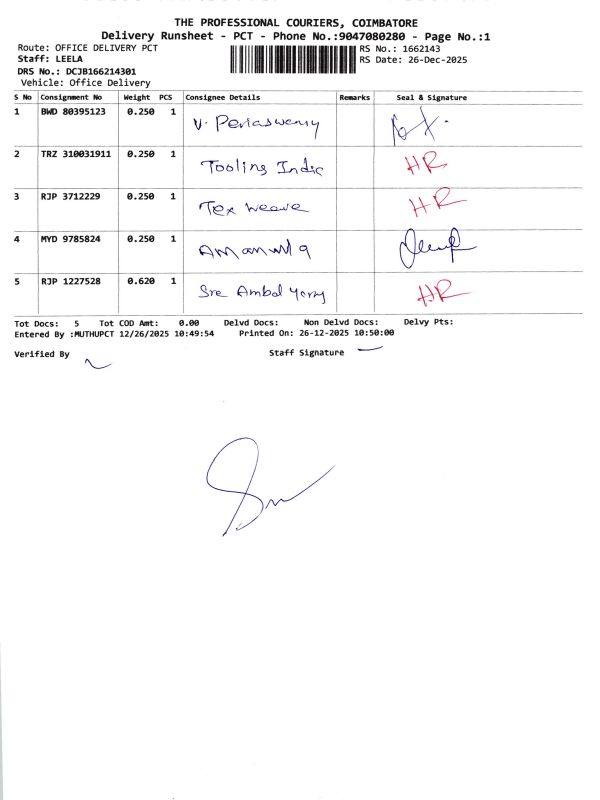 THE PROFESSIONAL COURIERS, COIMBATORE
Delivery Runsheet - PCT - Phone No.:9047080280 - Page No.:1
Route: OFFICE DELIVERY PCT RS No.: 1662143
Staff: LEELA RS Date: 26-Dec-2025
DRS No.: DCJB166214301
Vehicle: Office Delivery
S No Consignment No Weight PCS Consignee Details Remarks Seal & Signature
1 BWD 80395123 0.250 1 V. Periaswamy
2 TRZ 310031911 0.250 1 Tooling Indic HR
3 RJP 3712229 0.250 1 Tex weave HR
4 MYD 9785824 0.250 1 Amanulla
5 RJP 1227528 0.620 1 Sre Ambal HR
Tot Docs: 5 Tot COD Amt: 0.00 Delvd Docs: Non Delvd Docs: Delvy Pts:
Entered By :MUTHUPCT 12/26/2025 10:49:54 Printed On: 26-12-2025 10:50:00
Verified By Staff Signature